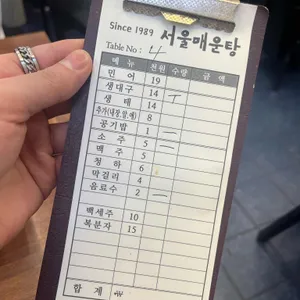 Since 1989 서울매운탕
Table No: 4
메뉴 천원 수량 금액
민어 19
생대구 14 ㅜ
생태 14
추가(내장,알,애) 8
공기밥 1 二
소주 5 二
맥주 5
청하 6
막걸리 4
음료수 2 二
백세주 10
복분자 15
합계 ₩